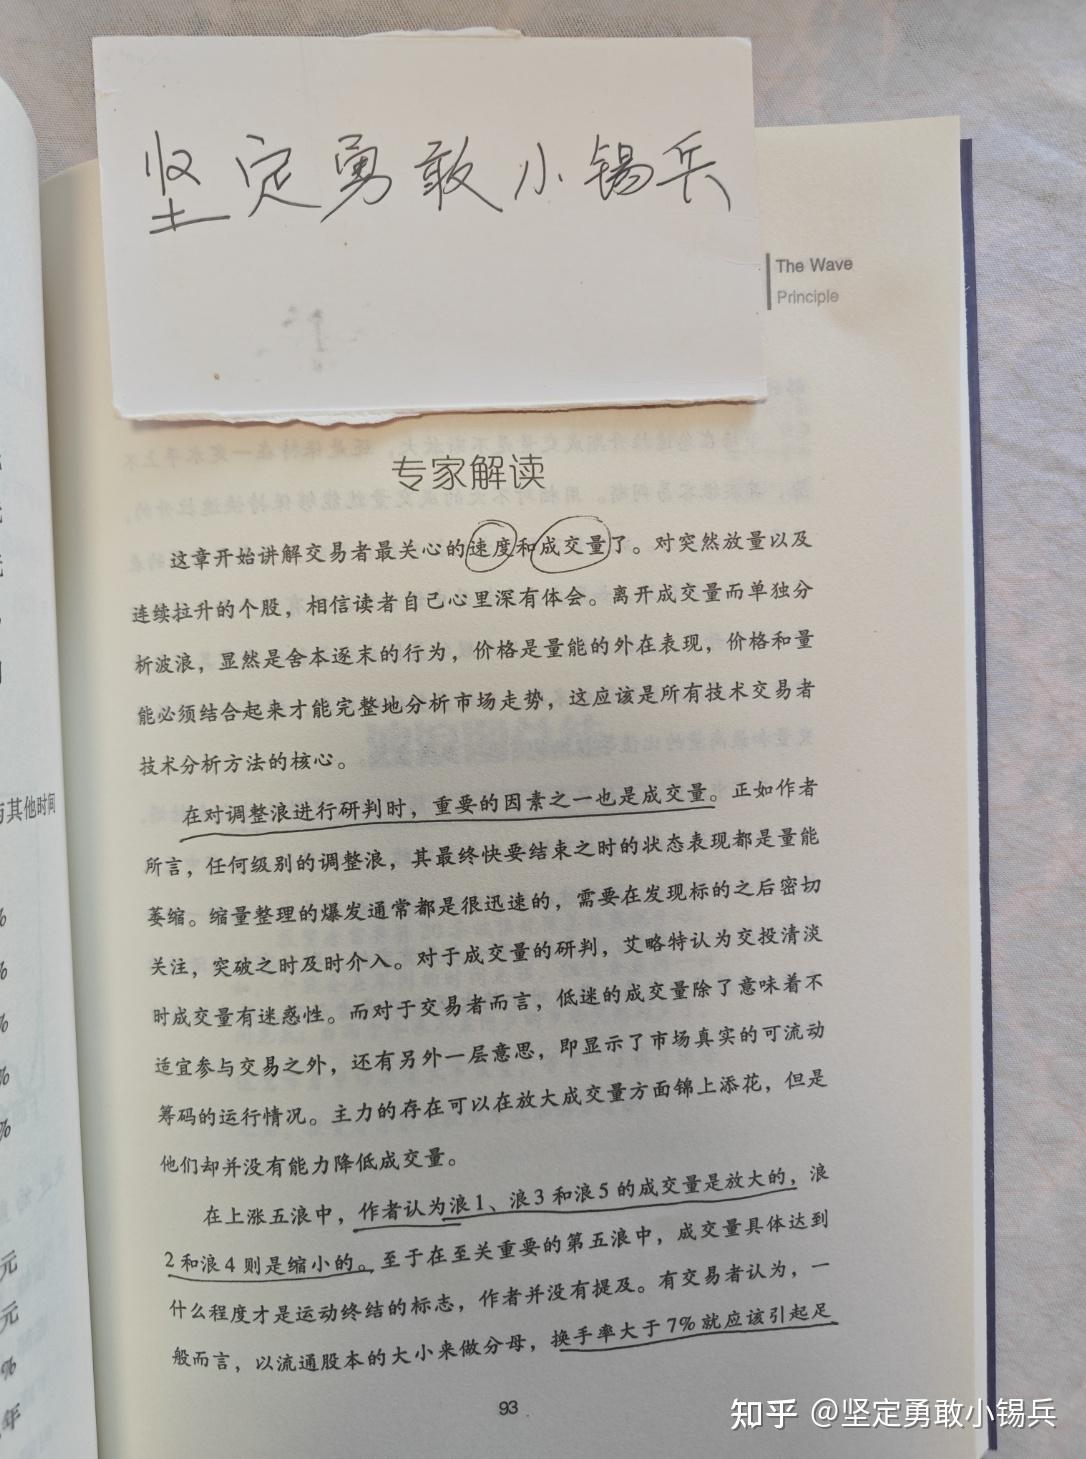 坚定勇敢小锡兵
The Wave
Principle
专家解读
这章开始讲解交易者最关心的速度和成交量了。对突然放量以及
连续拉升的个股，相信读者自己心里深有体会。离开成交量而单独分
析波浪，显然是舍本逐末的行为，价格是量能的外在表现，价格和量
能必须结合起来才能完整地分析市场走势，这应该是所有技术交易者
技术分析方法的核心。
在对调整浪进行研判时，重要的因素之一也是成交量。正如作者
所言，任何级别的调整浪，其最终快要结束之时的状态表现都是量能
萎缩。缩量整理的爆发通常都是很迅速的，需要在发现标的之后密切
关注，突破之时及时介入。对于成交量的研判，艾略特认为交投清淡
时成交量有迷惑性。而对于交易者而言，低迷的成交量除了意味着不
适宜参与交易之外，还有另外一层意思，即显示了市场真实的可流动
筹码的运行情况。主力的存在可以在放大成交量方面锦上添花，但是
他们却并没有能力降低成交量。
在上涨五浪中，作者认为浪1、浪3和浪5的成交量是放大的，浪
2和浪4则是缩小的。至于在至关重要的第五浪中，成交量具体达到
什么程度才是运动终结的标志，作者并没有提及。有交易者认为，一
般而言，以流通股本的大小来做分母，换手率大于7%就应该引起足
93
与其他时间
%
%
%
%
%
元
元
%
年
知乎 @坚定勇敢小锡兵